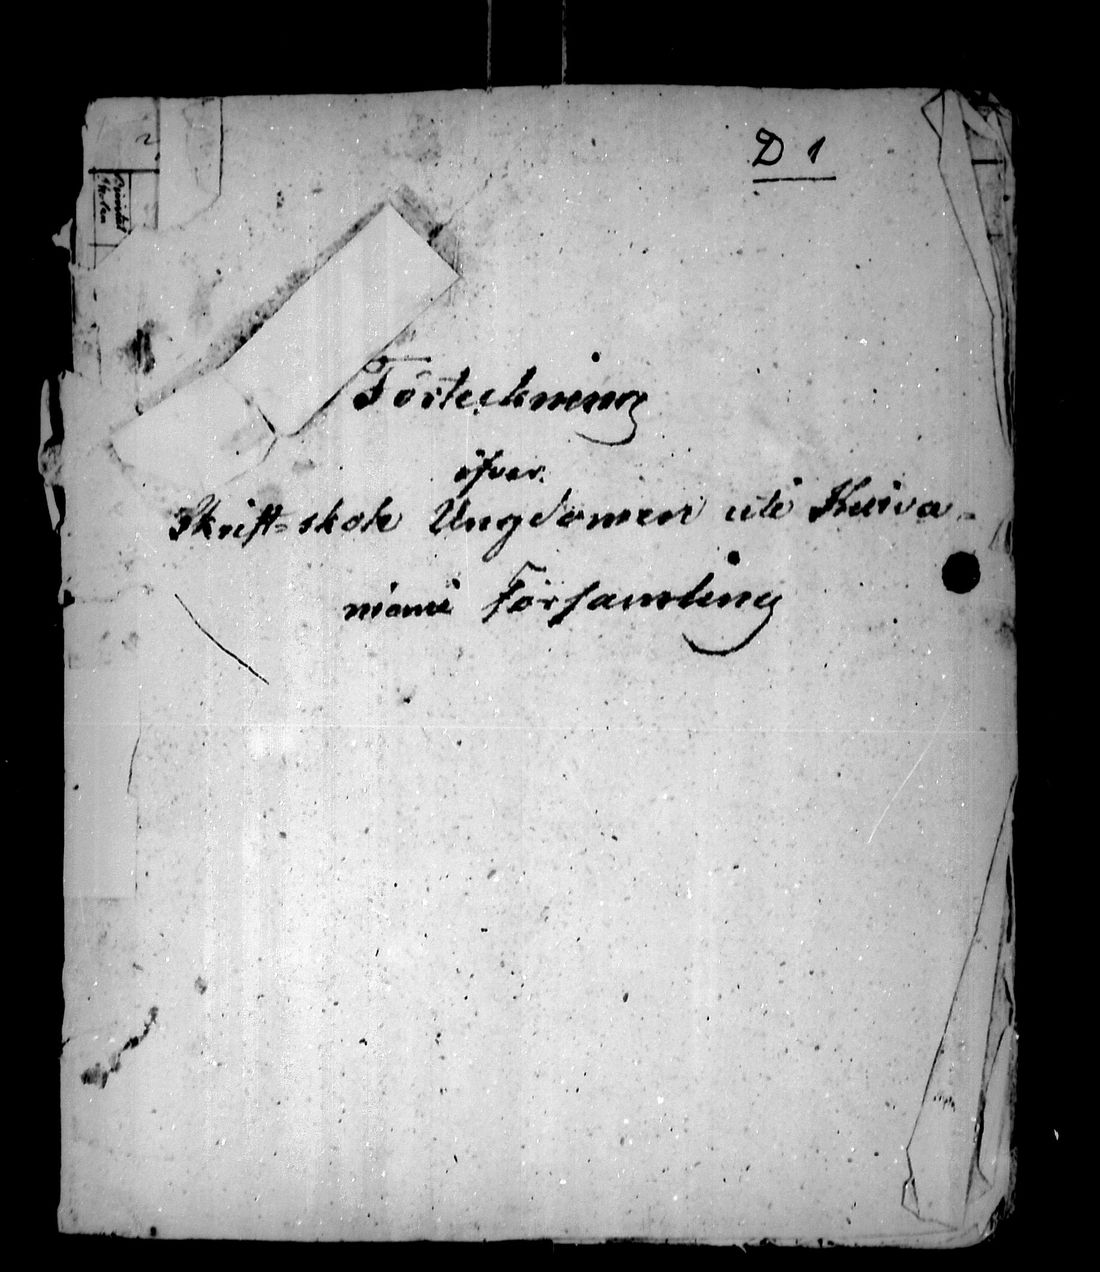 D 1
Förteckning
öfver.
Skrift-skole Ungdomen uti Kuiva-
niemi Församling